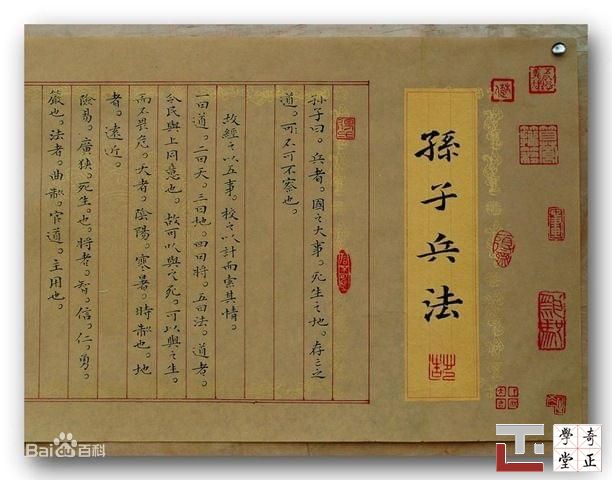 孫子兵法
孫子曰。兵者。國之大事。死生之地。存亡之
道。不可不察也。
故經之以五事。校之以計而索其情。
一曰道。二曰天。三曰地。四曰將。五曰法。道者。
令民與上同意也。故可以與之死。可以與之生。
而不畏危。天者。陰陽。寒暑。時制也。地
者。遠近。
險易。廣狹。死生。也。將者。智。信。仁。勇。
嚴也。法者。曲制。官道。主用也。
Bai百科
奇正
學堂